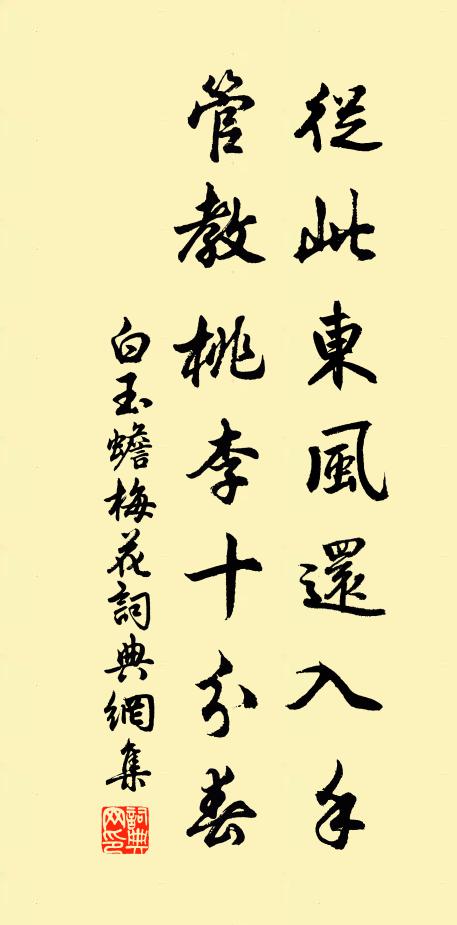 從此東風還入手
管教桃李十分春
白玉蟾梅花詞典網集
詞典網印